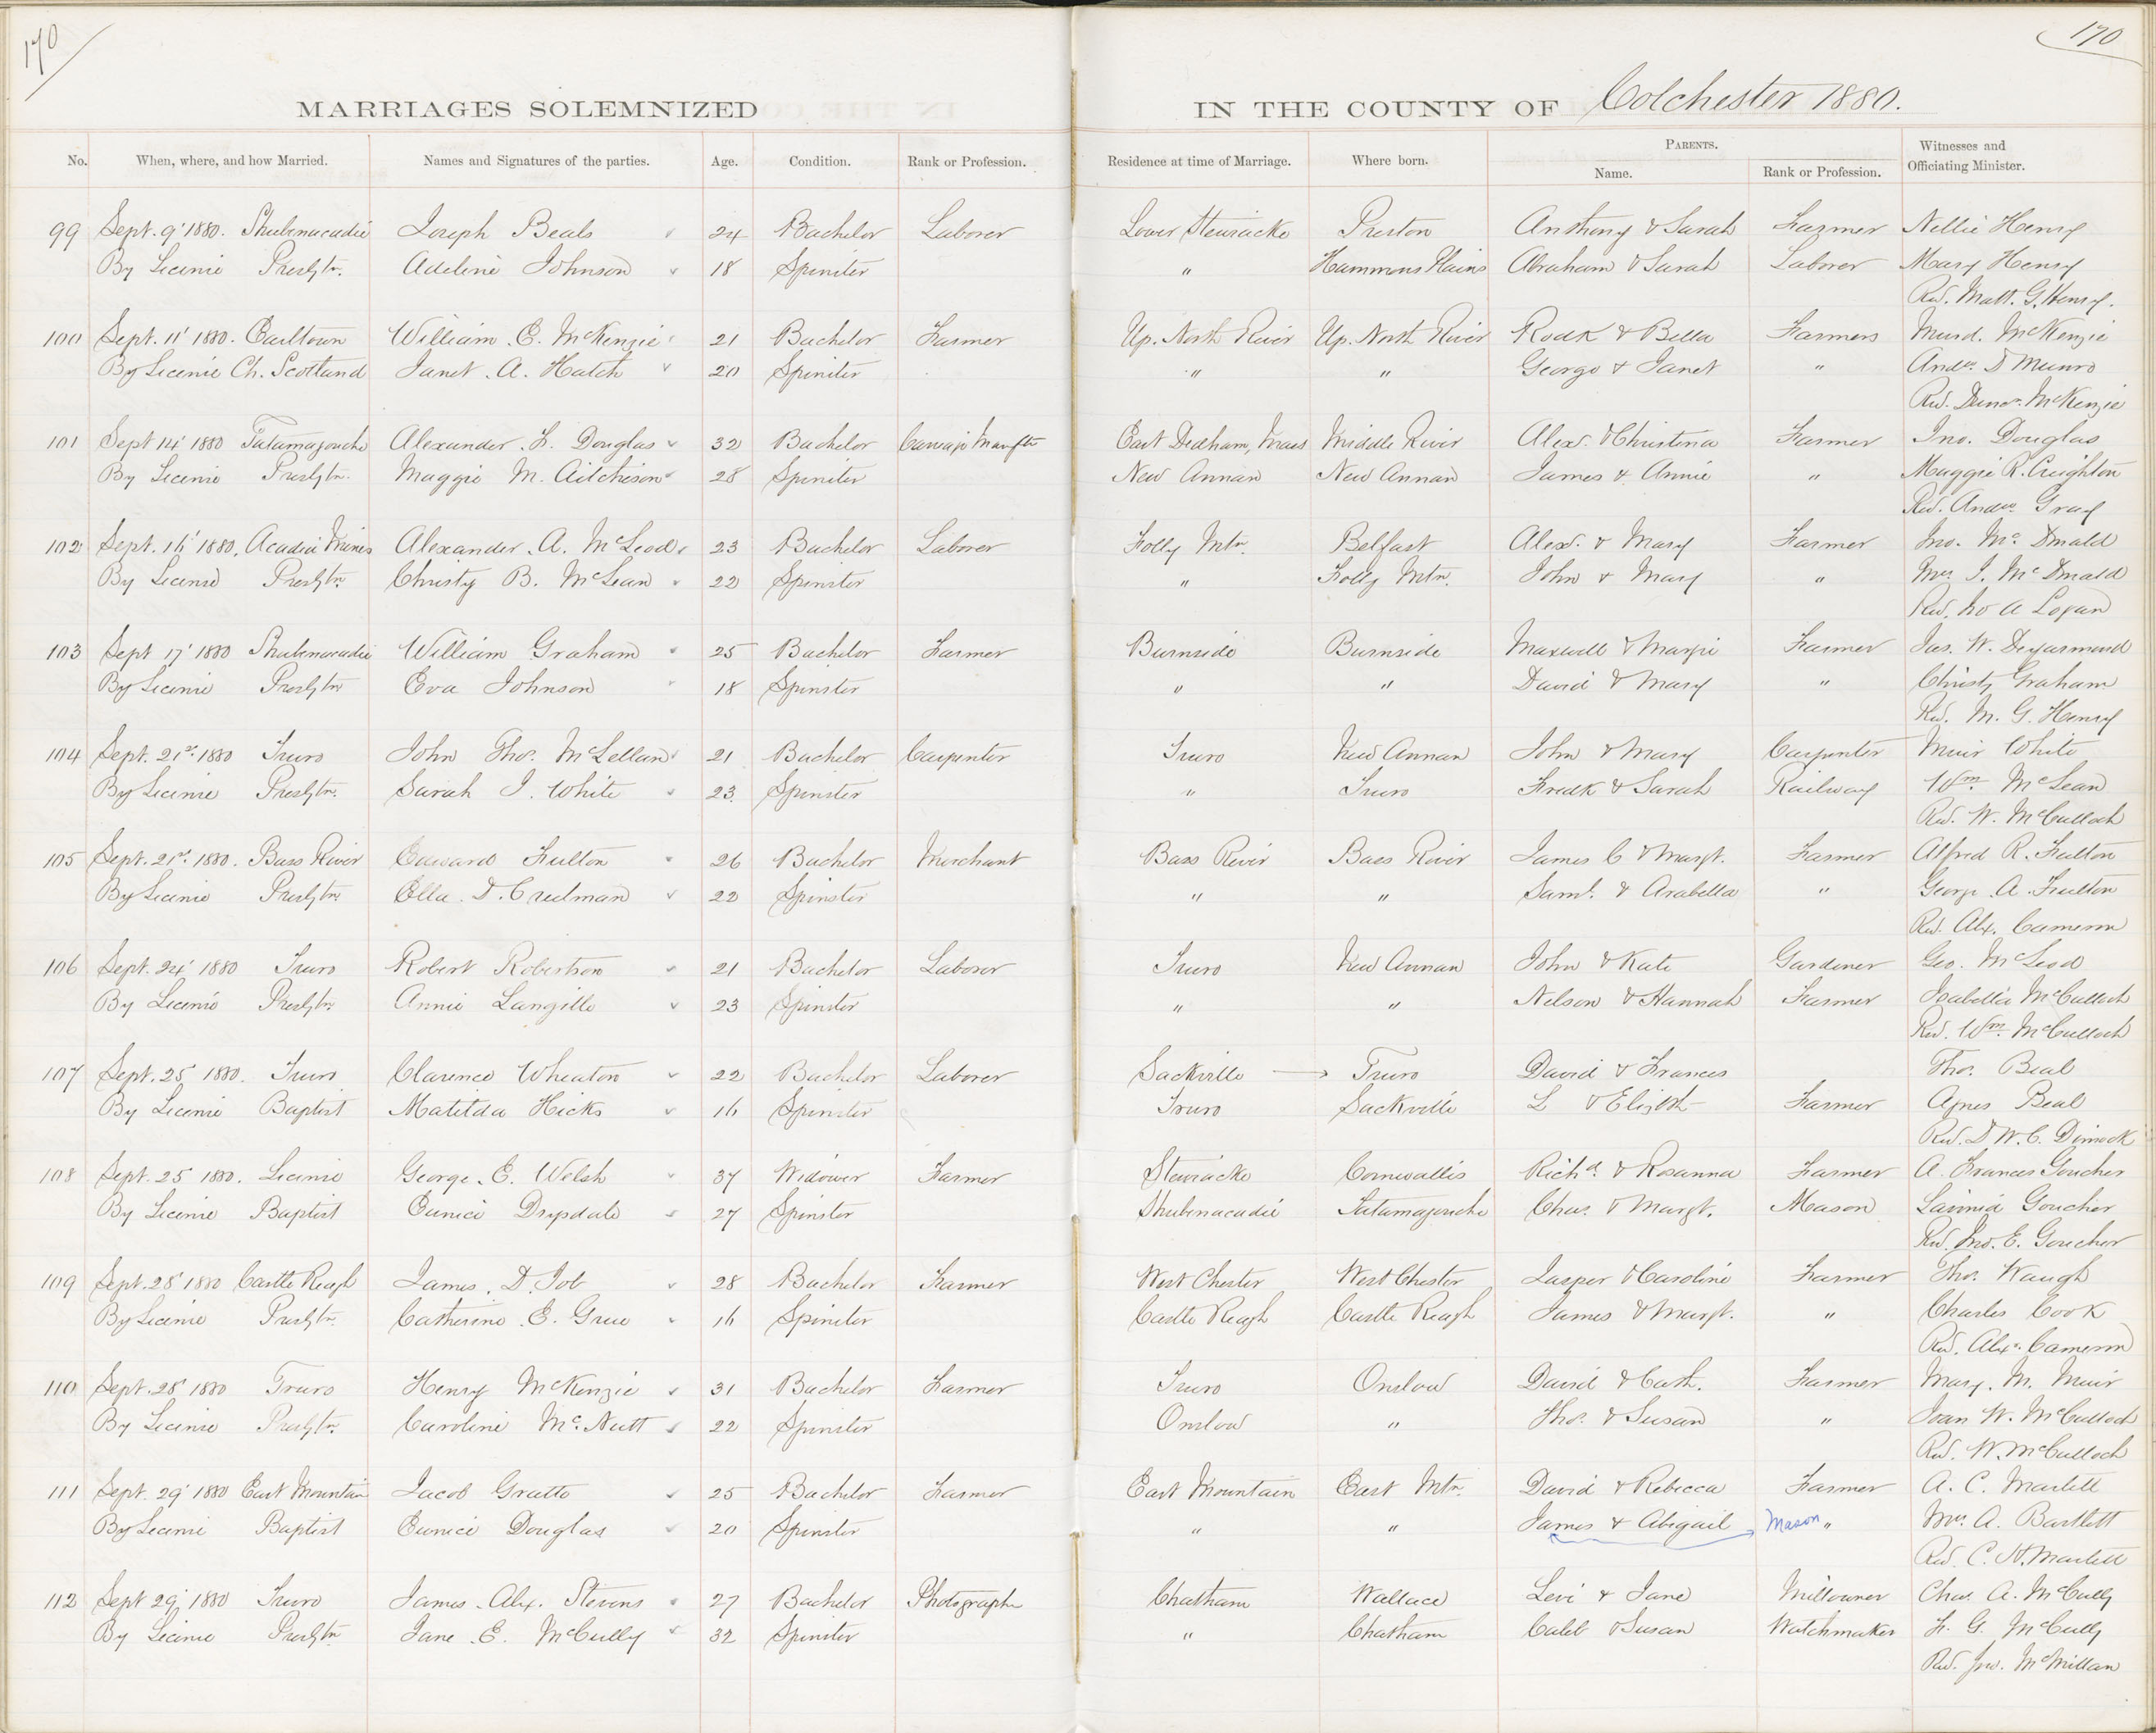 170
170
MARRIAGES SOLEMNIZED IN THE COUNTY OF Colchester 1880.
No. When, where, and how Married. Names and Signatures of the parties. Age. Condition. Rank or Profession. Residence at time of Marriage. Where born. PARENTS. Name. Rank or Profession. Witnesses and Officiating Minister.
99 Sept. 9' 1880. Shubenacadie Joseph Beals 24 Bachelor Laborer Lower Stewiacke Preston Anthony & Sarah Farmer Nellie Henry
By License Presbytn. Adeline Johnson 18 Spinster " Hammons Plains Abraham & Sarah Laborer Mary Henry
Rev. Matt. G. Henry.
100 Sept. 11' 1880. Earltown William E. McKenzie 21 Bachelor Farmer Up. North River Up. North River Rodk & Bella Farmers Murd. McKenzie
By License Ch. Scotland Janet A. Hatch 20 Spinster " " George & Janet " Andw. D Munro
Rev. McKenzie
101 Sept 14' 1880 Tatamagouche Alexander F. Douglas 32 Bachelor Carriage East Dedham, Mass Middle River Alexr. & Christina Farmer Jno. Douglas
By License Presbytn. Maggie M. Aitcheson 28 Spinster New Annan New Annan James & Annie " Maggie R. Creighton
Rev. Andw. Gray
102 Sept. 16' 1880, Acadia Mines Alexander A. McLeod 23 Bachelor Laborer Folly Mtn. Belfast Alexr. & Mary Farmer Jno. McDonald
By License Presbytn. Christy B. McLean 22 Spinster " Folly Mtn. John & Mary " Mrs J. McDonald
Rev. Jno A Logan
103 Sept 17' 1880 Shubenacadie William Graham 25 Bachelor Farmer Burnside Burnside Maxwell & Margie Farmer Jas. W. Degarmond
By License Presbytn Eva Johnson 18 Spinster " " David & Mary " Christy Graham
Rev. M. G. Henry
104 Sept. 21st 1880 Truro John Thos. McLellan 21 Bachelor Carpenter Truro New Annan John & Mary Carpenter Muir White
By License Presbytn. Sarah J. White 23 Spinster " Truro Fredk & Sarah Railway Wm. McLean
Rev. W. McCulloch
105 Sept. 21st 1880. Bass River Edward Fulton 26 Bachelor Merchant Bass River Bass River James C & Margt. Farmer Alfred R. Fulton
By License Presbytn Ella D. Creelman 22 Spinster " " Saml. & Arabella " George A. Fulton
Rev. Alx. Cameron
106 Sept. 24' 1880 Truro Robert Robertson 21 Bachelor Laborer Truro New Annan John & Kate Gardener Geo. McLeod
By License Presbytn. Annie Langille 23 Spinster " " Nelson & Hannah Farmer Isabella McCulloch
Rev. Wm. McCulloch
107 Sept. 25' 1880. Truro Clarence Wheaton 22 Bachelor Laborer Sackville Truro David & Frances Thos. Beal
By License Baptist Matilda Hicks 16 Spinster Truro Sackville L & Elizbth Farmer Agnes Beal
Rev. D. W. C. Dimock
108 Sept. 25' 1880. License George E. Welsh 37 Widower Farmer Stewiacke Cornwallis Richd. & Rosanna Farmer A. Frances Goucher
By License Baptist Eunice Drysdale 27 Spinster Shubenacadie Tatamagouche Chas. & Margt. Mason Lavinia Goucher
Rev. Jno. E. Goucher
109 Sept. 28' 1880 Castle Reagh James D. Job 28 Bachelor Farmer West Chester West Chester Jasper & Caroline Farmer Thos. Waugh
By License Presbytn. Catherine E. Grue 16 Spinster Castle Reagh Castle Reagh James & Margt. " Charles Cook
Rev. Alxr. Cameron
110 Sept. 28' 1880 Truro Henry McKenzie 31 Bachelor Farmer Truro Onslow David & Cath. Farmer Mary. M. Muir
By License Presbytn. Caroline McNutt 22 Spinster Onslow " Thos. & Susan " Joan W. McCulloch
Rev. W. McCulloch
111 Sept. 29' 1880 East Mountain Jacob Gratto 25 Bachelor Farmer East Mountain East Mtn. David & Rebecca Farmer A. C. Martell
By License Baptist Eunice Douglas 20 Spinster " " James & Abigail Mason " Mrs. A. Bartlett
Rev. C. H. Martell
112 Sept 29' 1880 Truro James Alex. Stevens 27 Bachelor Photographr Chatham Wallace Levi & Jane Millowner Chas. A. McCully
By License Presbytn Jane E. McCully 32 Spinster " Chatham Caleb & Susan Watchmaker F. G. McCully
Rev. Jno. McMillan